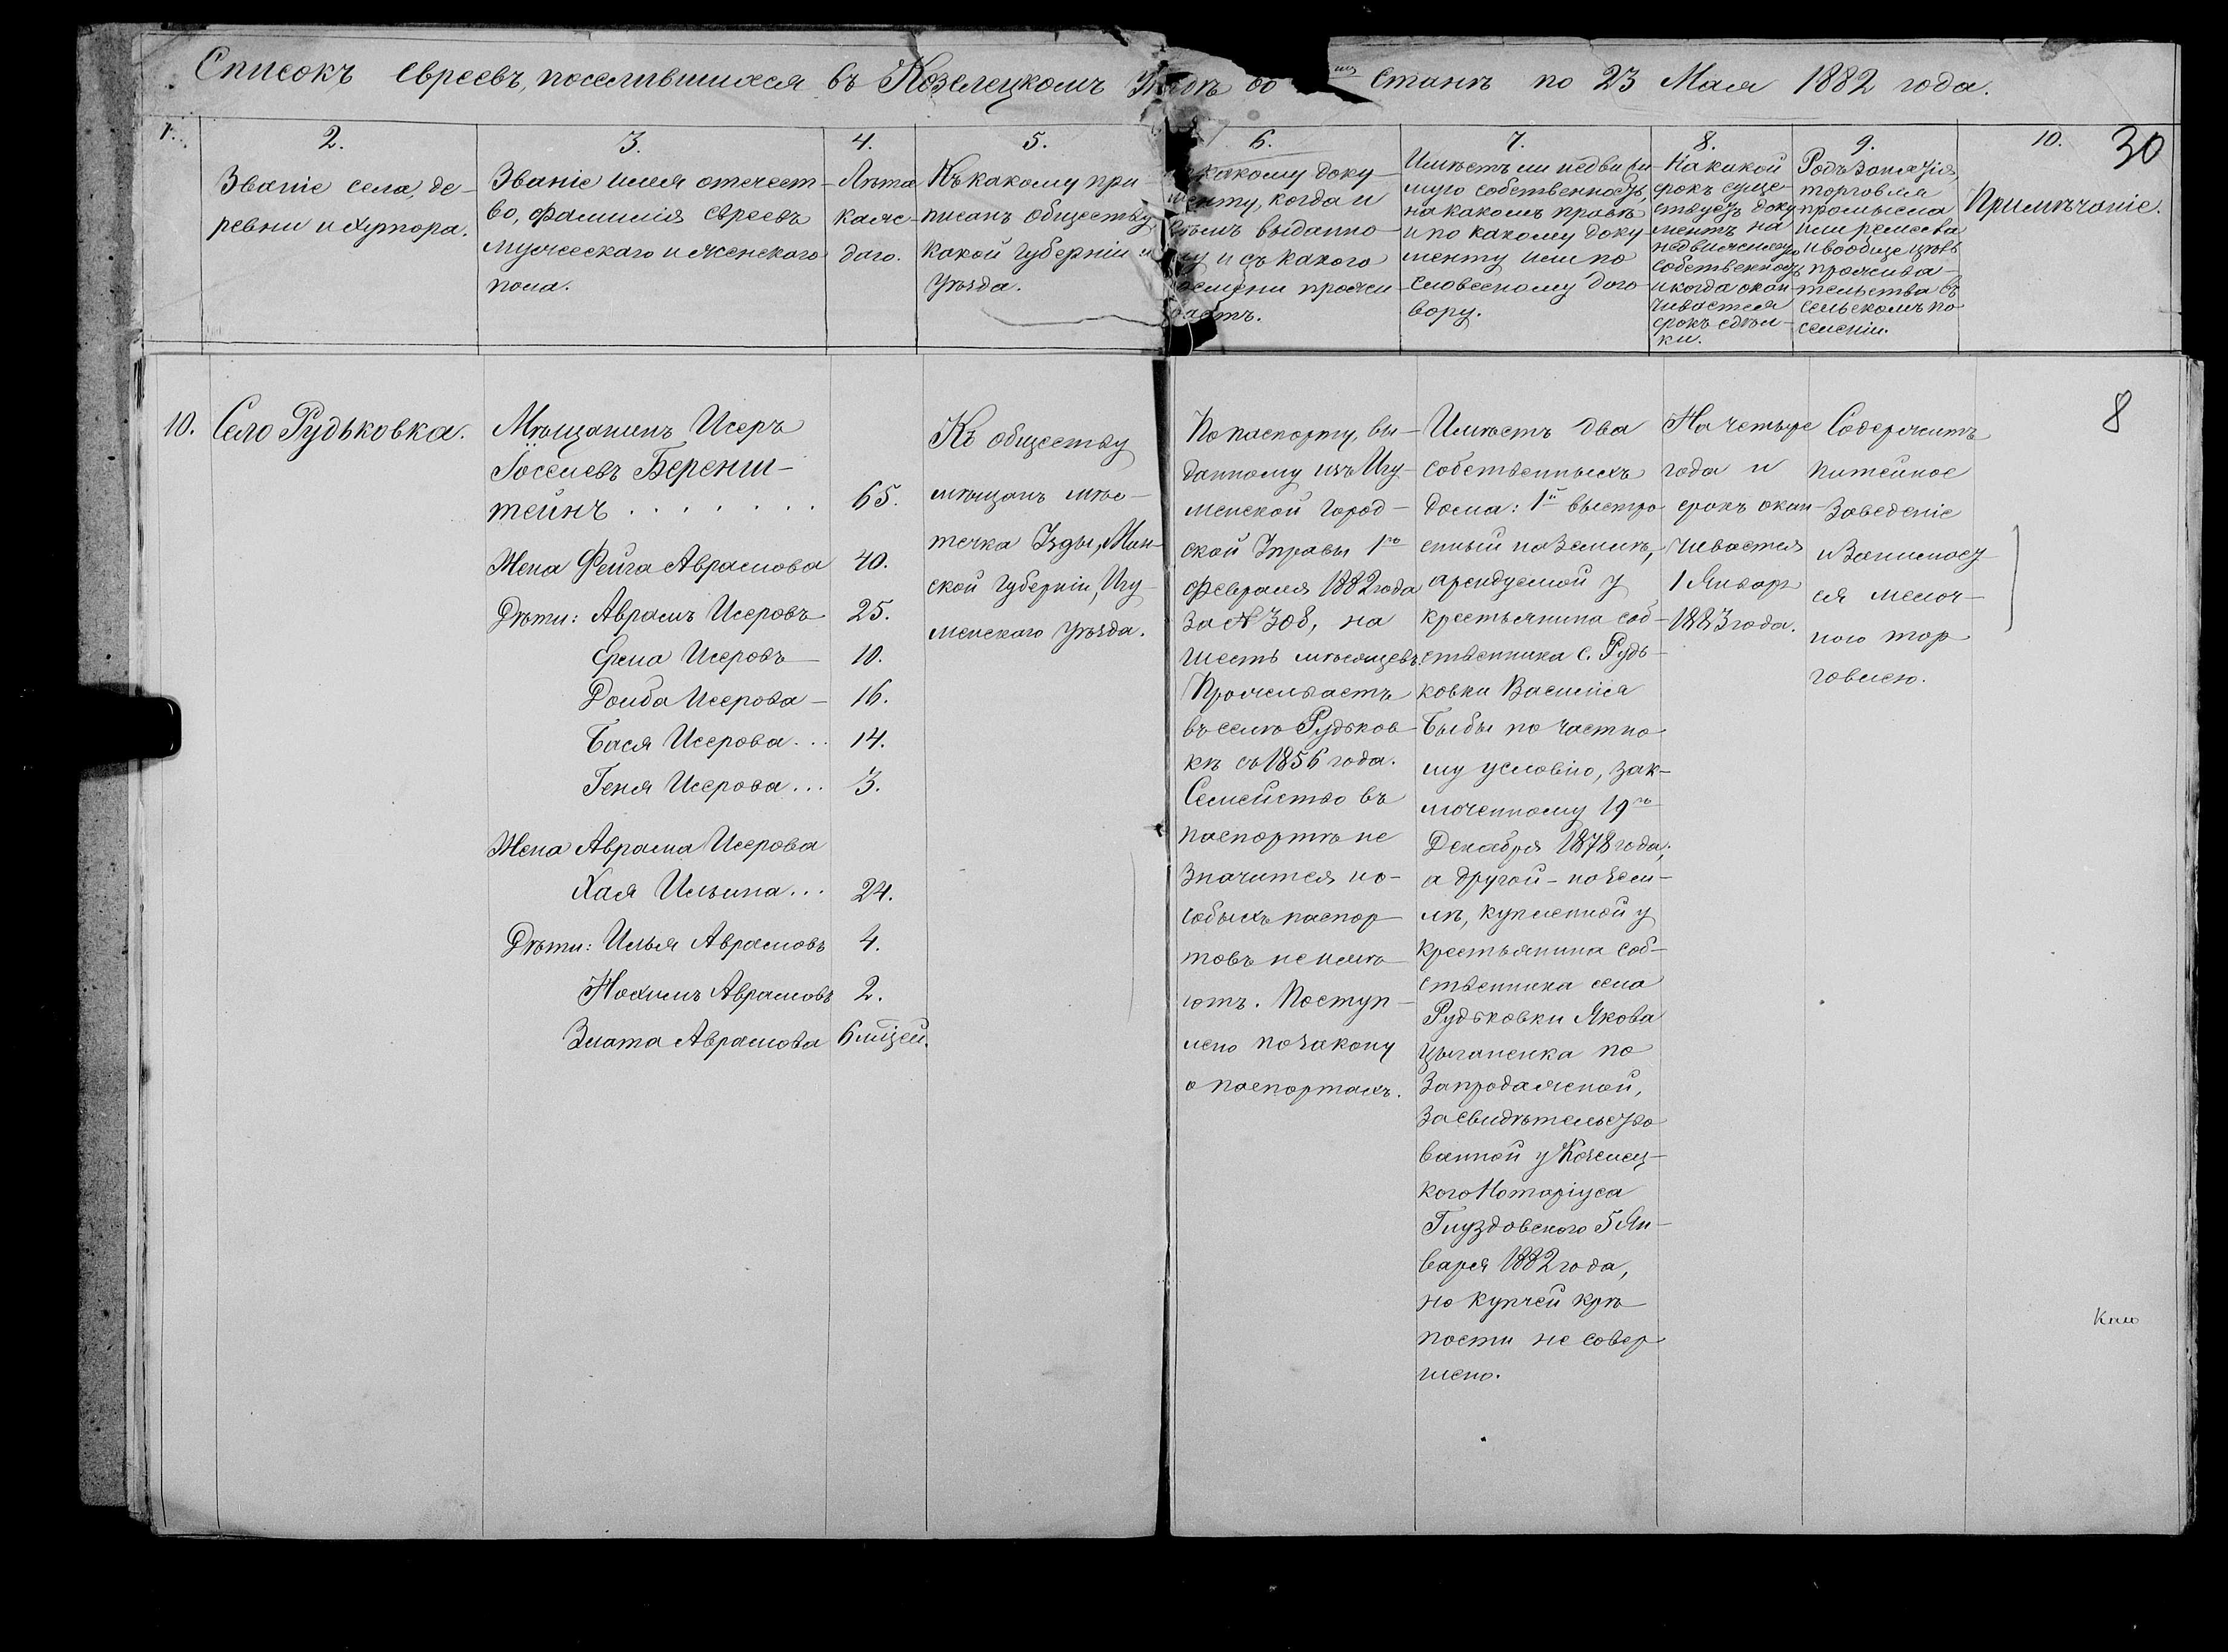 Списокъ евреевъ, поселившихся въ Козелецкомъ Уѣздѣ во станѣ по 23 Мая 1882 года.
30
1.
2.
Званіе села, де-
ревни и хутора.
3.
Званіе имя отечест-
во, фамилія евреевъ
мужескаго и женскаго
пола.
4.
Лѣта
каж-
даго.
5.
Къ какому при-
писанъ обществу
какой Губерніи и
Уѣзда.
6.
какому доку-
менту, когда и
кѣмъ выданно-
му и съ какого
времени прожи-
ваетъ.
7.
Имѣетъ ли недвижи-
мую собственность,
на какомъ правѣ
и по какому доку-
менту или по
словесному дого-
вору.
8.
На какой
срокъ суще-
ствуетъ доку
ментъ на
недвижимую
собственность
и когда окан-
чивается
срокъ сдѣл-
ки.
9.
Родъ занятія,
торговля
промысла
или ремесла
и вообще цѣль
прожива-
тельства въ
сельскомъ по
селеніи.
10.
Примѣчаніе.
8
10.
Село Рудьковка.
Мѣщанинъ Исеръ
Іоселевъ Беренш-
тейнъ . . . . . . . 65.
Жена Фейга Абрамова 40.
Дѣти: Абрамъ Исеровъ 25.
Срема Исеровъ — 10.
Доиба Исерова — 16.
Бася Исерова ... 14.
Геня Исерова ... 3.
Жена Абрама Исерова
Хая Ильина ... 24.
Дѣти: Илья Абрамовъ 4.
Нохимъ Абрамовъ 2.
Злата Абрамова 6 мѣцей.
Къ обществу
мѣщанъ мѣс-
течка Узды, Мин-
ской Губерніи, Игу-
менскаго Уѣзда.
По паспорту, вы-
данному изъ Игу-
менской Город-
ской Управы 1го
Февраля 1882 года
за № 308, на
шесть мѣсяцевъ.
Проживаетъ
въ селѣ Рудьков-
кѣ съ 1856 года.
Семейство въ
паспортѣ не
значится и о-
собыхъ паспор-
товъ не имѣ-
ютъ. Поступ-
лено по закону
о паспортахъ.
Имѣетъ два
собственныхъ
дома: 1й выстро
енный на землѣ,
арендуемой у
крестьянина соб-
ственника с. Рудь-
ковки Василія
Быбы по частно
му условію, зак-
люченному 19го
Декабря 1878 года;
а другой - на зем-
лѣ, купленной у
крестьянина соб-
ственника села
Рудьковки Якова
Цыганенка по
запродажной,
засвидѣтельство
ванной у Козелец-
кого Нотаріуса
Гнуздовского 5 Ян-
варя 1882 года,
но купчей крѣ
пости не совер
шено.
На четыре
года и
срокъ окан-
чивается
1 Января
1883 года.
Содержитъ
питейное
заведеніе
и занимает
ся мелоч-
ною тор
говлею.